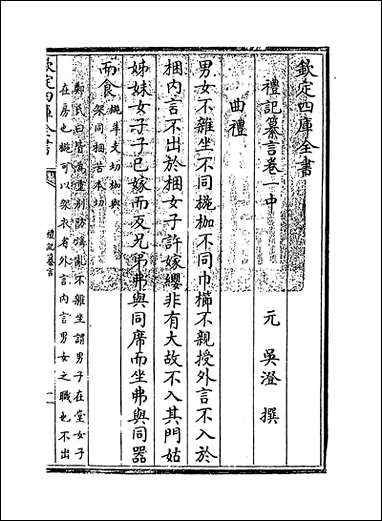 欽定四庫全書
禮記纂言卷一中
元 吳澄 撰
曲禮
男女不雜坐不同椸枷不同巾櫛不親授外言不入於
梱内言不出於梱女子許嫁纓非有大故不入其門姑
姊妹女子子已嫁而反兄弟弗與同席而坐弗與同器
而食椸羊支切枷與
架同梱苦本切
鄭氏曰皆為重别防淫亂不雜坐謂男子在堂女子
在房也椸可以架衣者外言内言男女之職也不出
欽定四庫全書
禮記纂言
一